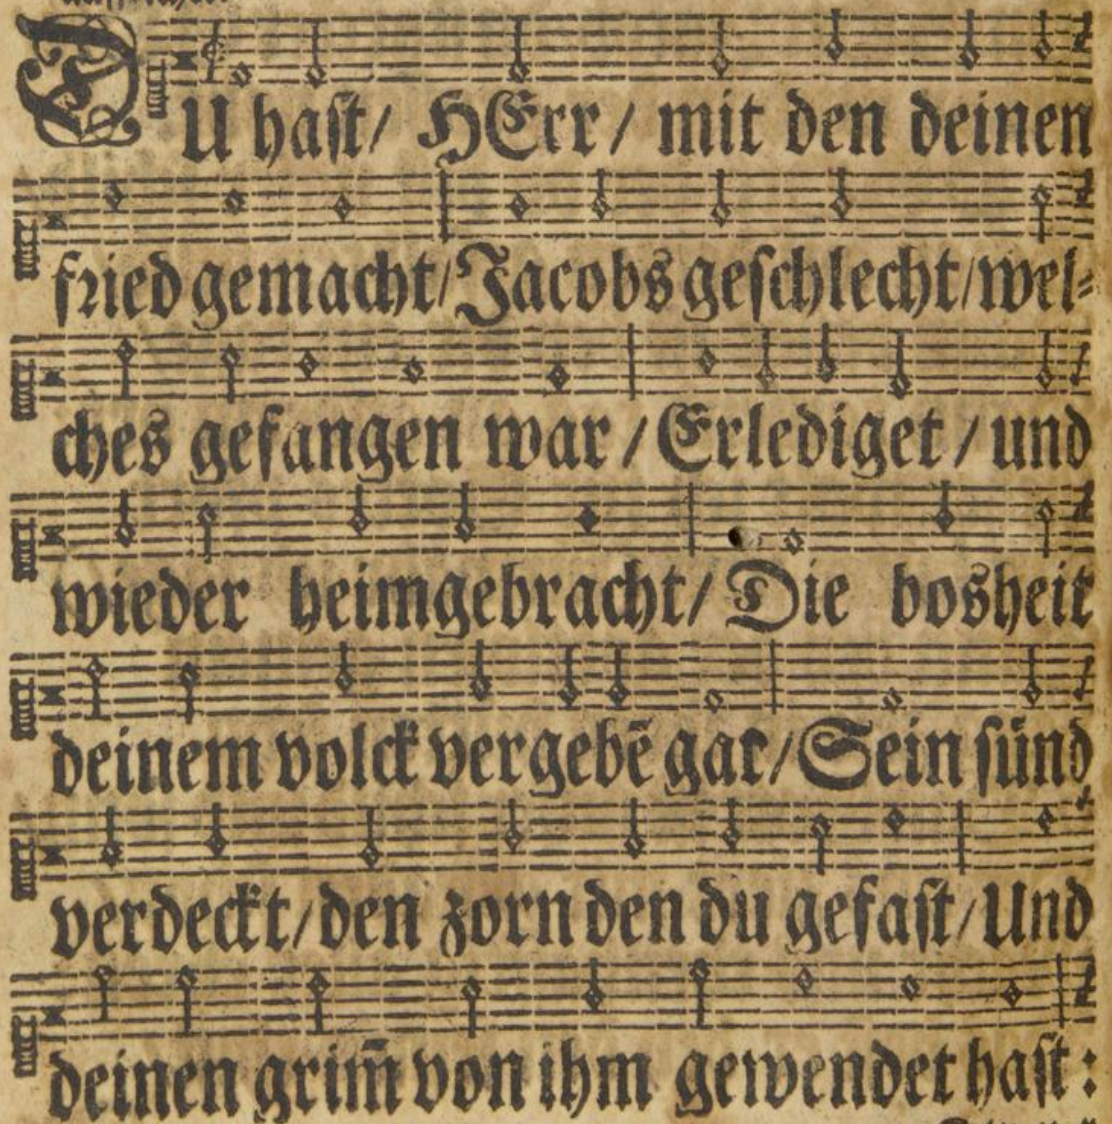 DU hast/ HErr/ mit den deinen
fried gemacht/ Jacobs geschlecht/ wel⸗
ches gefangen war / Erlediget / und
wieder heimgebracht/ Die bosheit
deinem volck vergebẽ gar/ Sein sünd
verdeckt/ den zorn den du gefast/ Und
deinen grim̃ von ihm gewendet hast: